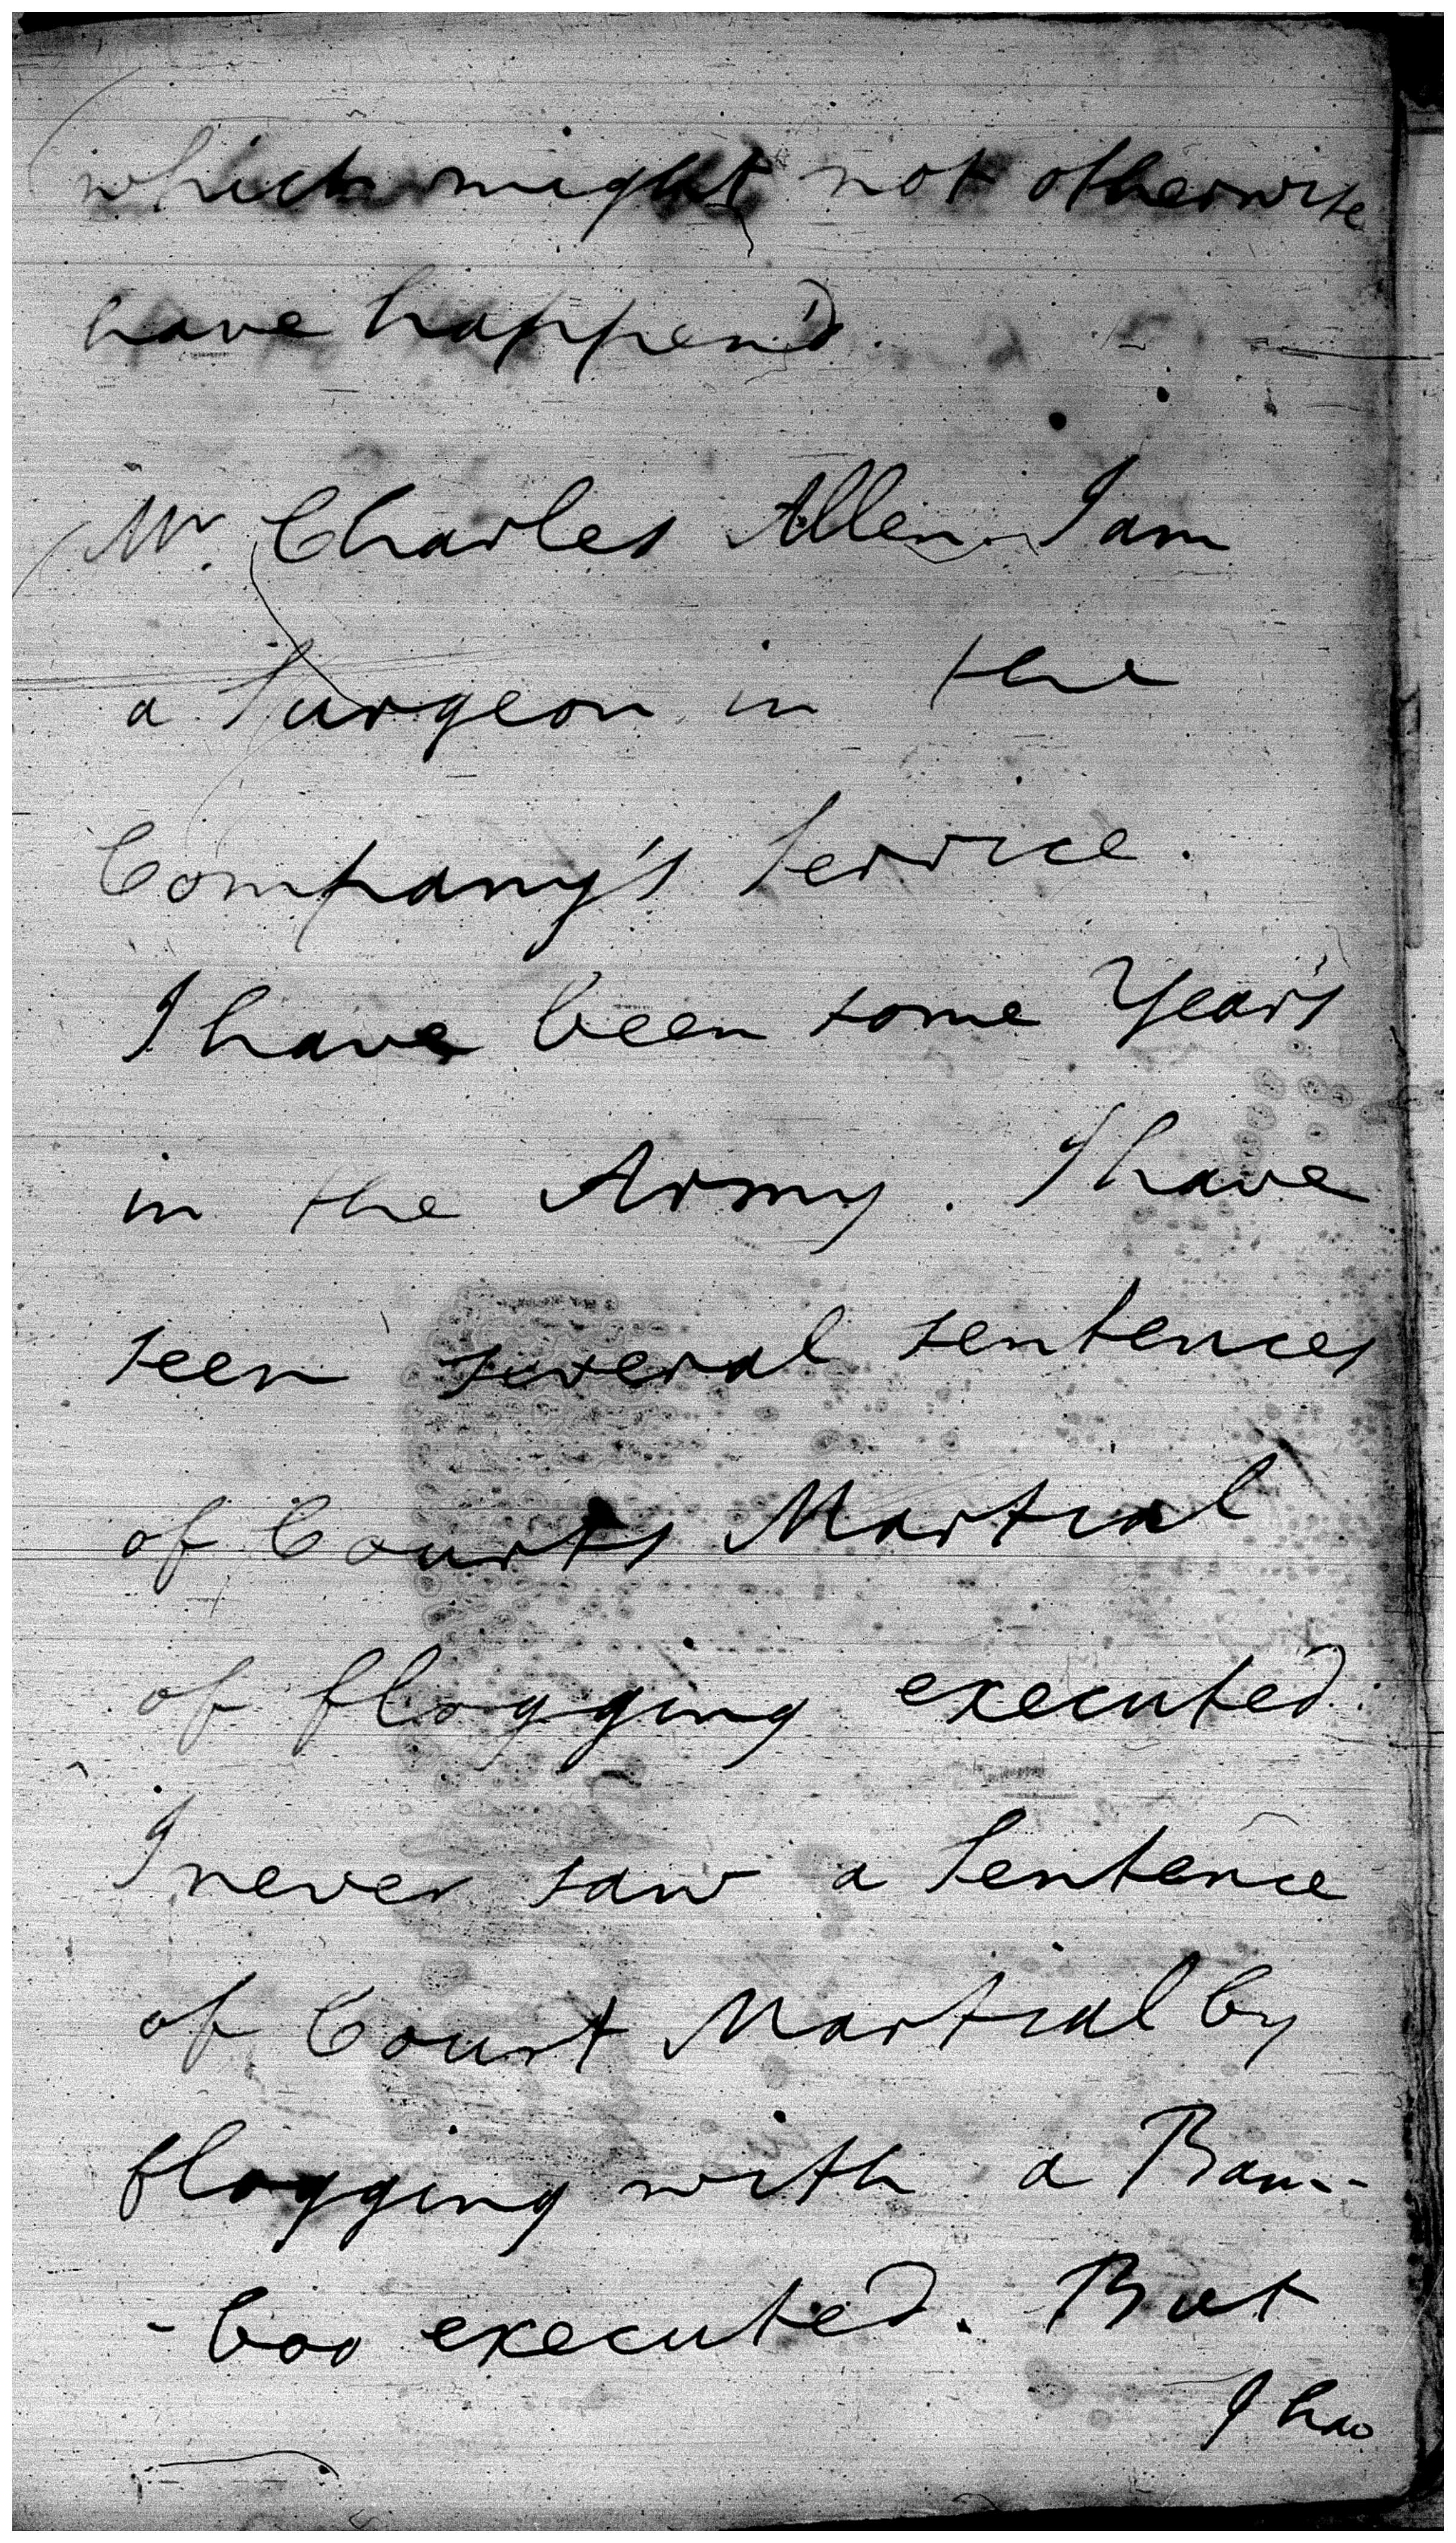 which might not otherwise
have happen'd.
Mr. Charles Allen. I am
a Surgeon in the
Company's Service.
I have been some Years
in the Army. I have
seen several sentences
of Courts Martial
of flogging executed.
I never saw a Sentence
of Court Martial by
flogging with a Bam-
-boo executed. But
I hav